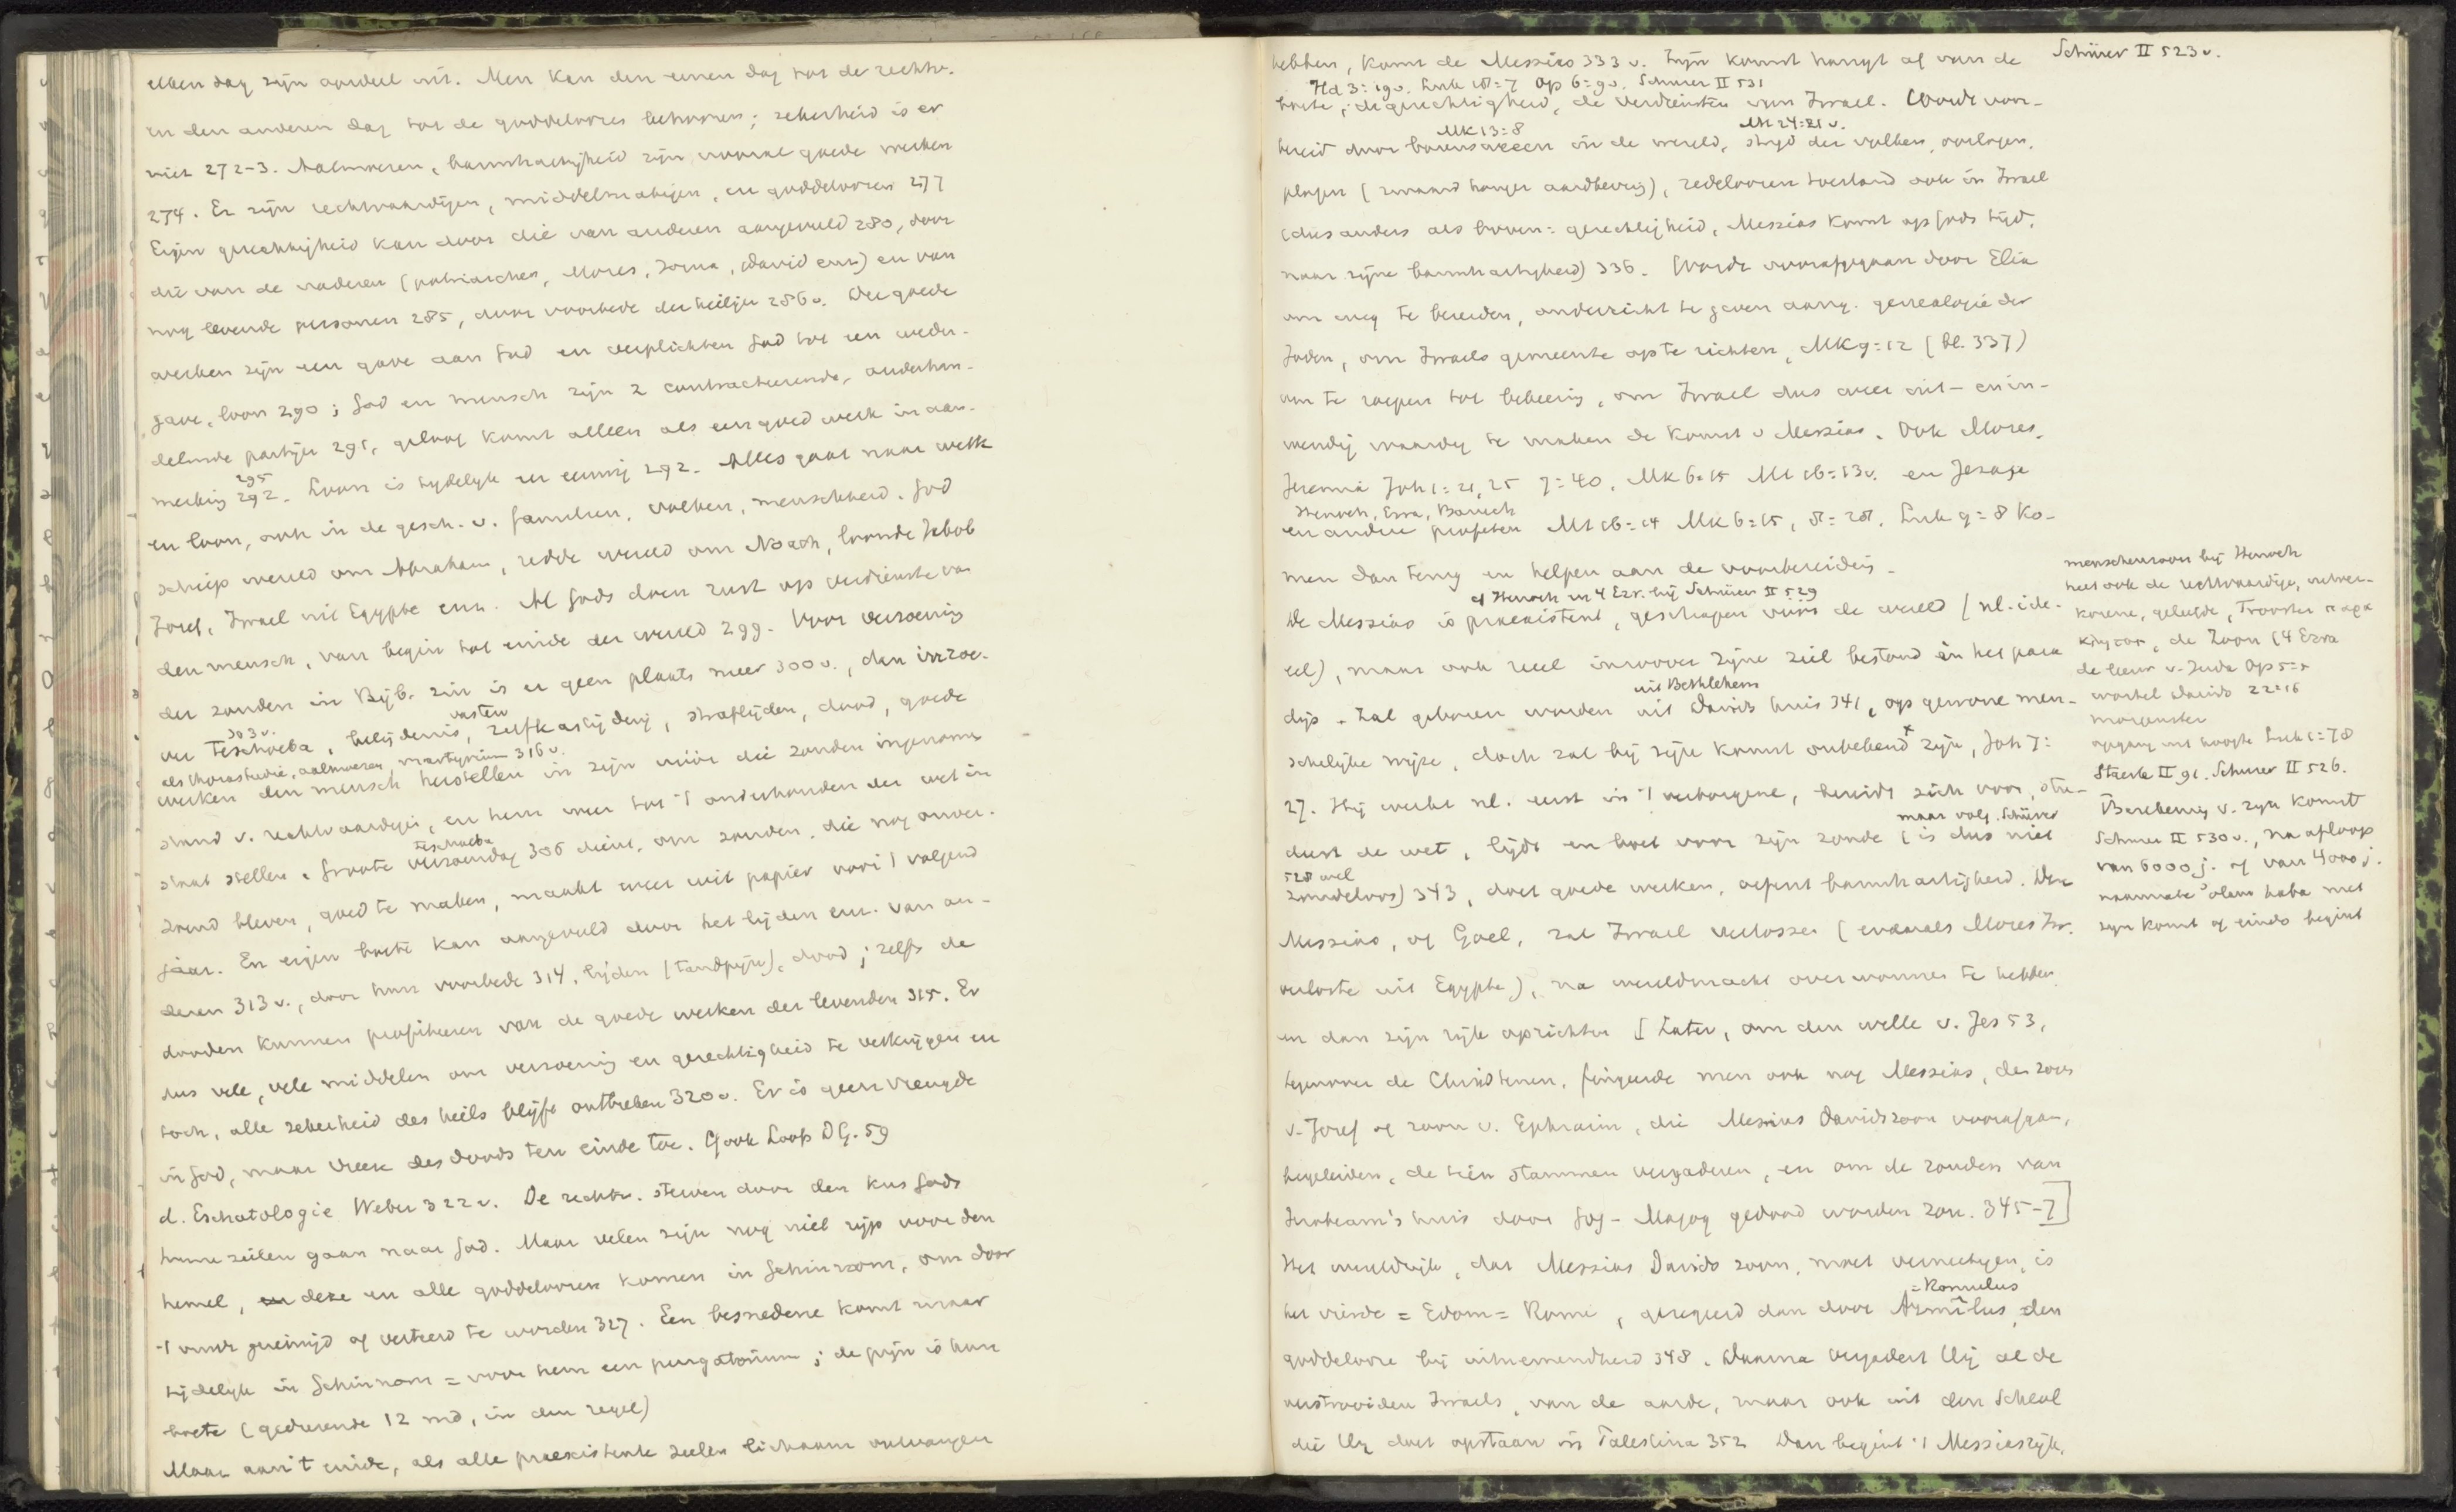 elken dag zijn oordeel uit. Men kan den eenen dag tot de rechtv.
en den anderen dag tot de goddeloozen behooren; zekerheid is er
niet 272-3. Aalmoezen, barmhartigheid zijn vooral goede werken
274. Er zijn rechtvaardigen, middelmatigen, en goddeloozen 277
Eigen gerechtigheid kan door die van anderen aangevuld 280, door
die van de vaderen (patriarchen, Mozes, Jozua, David enz) en van
nog levende personen 285, door voorbede der heiligen 286v. De goede
werken zijn een gave aan God en verplichten God tot een weder-
gave, loon 290; God en mensch zijn 2 contracteerende, onderhan-
delende partijen 291, geloof komt alleen als een goed werk in aan-
295
merking 292. Loon is tijdelijk en eeuwig 292. Alles gaat naar werk
en loon, ook in de gesch. v. familien, volken, menschheid. God
schiep wereld om Abraham, redde wereld om Noach, loonde Jakob
Jozef, Israel uit Egypte enz. Al Gods doen rust op verdienste van
den mensch, van begin tot einde der wereld 299. Voor verzoening
der zonden in Bijb. zin is er geen plaats meer 300v.,
303v. vasten
Teschoeba, belijdenis, zelfkastijding, straflijden, dood, goede
als thorastudie, aalmoezen, martyrium 316v.
werken den mensch herstellen in zijn vóór die zonden ingenomen
stand v. rechtvaardigen, en hem weer tot 't onderhouden der wet in
teschoeba
staat stellen. Groote verzoendag 306 dient, om zonden, die nog onver-
zoend bleven, goed te maken, maakt weer wit papier voor 't volgend
jaar. En eigen boete kan aangevuld door het lijden enz. van an-
deren 313v., door hun voorbede 314, lijden (tandpijn), dood; zelfs de
dooden kunnen profiteeren van de goede werken der levenden 315. Er
dus vele, vele middelen om verzoening en gerechtigheid te verkrijgen en
toch, alle zekerheid des heils blijft ontbreken 320v. Er is geen vreugde
in God, maar vrees des doods ten einde toe. Cf ook Loofs DG. 59
d. Eschatologie Weber 322v. De rechtv. sterven door den kus Gods
hunne zielen gaan naar God. Maar velen zijn nog niet rijp voor den
hemel, en deze en alle goddeloozen komen in Gehinnom, om door
't vuur gereinigd of verteerd te worden 327. Een besnedene komt maar
tijdelijk in Gehinnom = voor hem een purgatorium; de pijn is hun
boete (gedurende 12 md, in den regel)
Maar aan 't einde, als alle praeexistente zielen lichaam ontvangen
hebben, komt de Messias 333v. Zijn komst hangt af van de Schürer II 523v.
Hd 3:19v. Luk 18:7 Op 6:9v. Schurer II 531
boete, de gerechtigheid, de verdiensten van Israel. Wordt voor-
Mk 13:8 Mt 24:21v.
bereid door barensweeen in de wereld, strijd der volken, oorlogen,
plagen (zwaard honger aardbeving), redeloozen toestand ook in Israel
(dus anders als boven: gerechtigheid, Messias komt op Gods tijd,
naar zijne barmhartigheid) 336. Wordt voorafgegaan door Elia
om weg te bereiden, onderricht te geven aang. genealogie der
Joden, om Israels gemeente op te richten, Mk 9:12 (bl. 337)
om te roepen tot bekeering, om Israel dus weer uit- en in-
wendig waardig te maken de komst v Messias. Ook Mozes,
Jeremia Joh 1:21, 25 7:40, Mk 6:15 Mt 16:13v. en Jesaja
Henoch, Ezra, Baruch
en andere profeten Mt 16:14 Mk 6:15, 8:28, Luk 9:8 ko-
men dan terug en helpen aan de voorbereiding.
cf Henoch en 4 Ezr. bij Schürer II 529
De Messias is praeexistent, geschapen vóór de wereld (nl. ide-
eel), maar ook reëel inzoover zijne ziel bestond in het para
uit Bethlehem
dijs. Zal geboren worden uit Davids huis 341, op gewone men-
schelijke wijze, doch zal bij zijn komst onbekend x zijn, Joh 7:
27. Hij werkt nl. eerst in 't verborgene, bereidt zich voor, stu-
maar volg. Schürer
deert de wet, lijdt en boet voor zijn zonde (is dus niet
528 wel
zondeloos) 343, doet goede werken, oefent barmhartigheid. Deze
Messias, of Goel, zal Israel verlossen (evenals Mozes Isr.
verloste uit Egypte), na wereldmacht overwonnen te hebben
en dan zijn rijk oprichten [Later, om den wille v. Jes 53,
tegenover de Christenen, fingeerde men ook nog Messias, den zoon
v. Jozef of zoon v. Ephraim, die Messias Davidszoon voorafgaan,
begeleiden, de tien stammen vergaderen, en om de zonden van
Jerobeam's huis door Gog-Magog gedood worden zou. 345-7]
Het wereldrijk, dat Messias Davids zoon, moet vernietigen, is
= Romulus
het vierde = Edom = Rome, geregeerd dan door Armilus, den
goddelooze bij uitnemendheid 348. Daarna vergadert Hij al de
verstrooiden Israels, van de aarde, maar ook uit den Scheol
die Hij doet opstaan in Palestina 352 Dan begint 't Messiasrijk,
menschenzoon bij Henoch
heet ook de rechtvaardige, uitver-
korene, geliefde, Trooster
de Zoon (4 Ezra
de leeuw v. Juda Op 5:5
wortel Davids 22:16
morgenster
opgang uit hoogte Luk 1:78
Staerk II 91. Schurer II 526.
Berekening v. zijn komst
Schurer II 530v., na afloop
van 6000 j. of van 4000 j.
naarmate 'olam haba met
zijn komst of einde begint